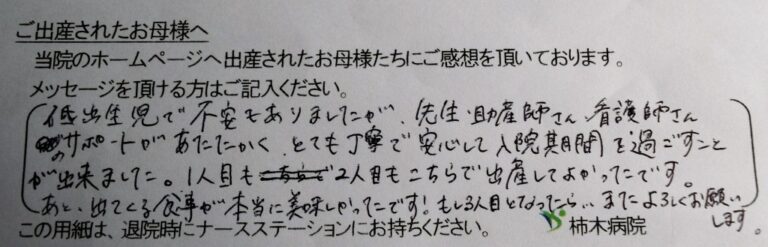 ご出産されたお母様へ
当院のホームページへ出産されたお母様たちにご感想を頂いております。
メッセージを頂ける方はご記入ください。
低出生児で不安もありましたが、先生、助産師さん、看護師さん
のサポートがあたたかく、とても丁寧で安心して入院期間を過ごすこと
が出来ました。1人目も2人目もこちらで出産してよかったです。
あと、出てくる食事が本当に美味しかったです!もし3人目となったら…またよろしくお願い
します。
この用紙は、退院時にナースステーションにお持ちください。 柿木病院